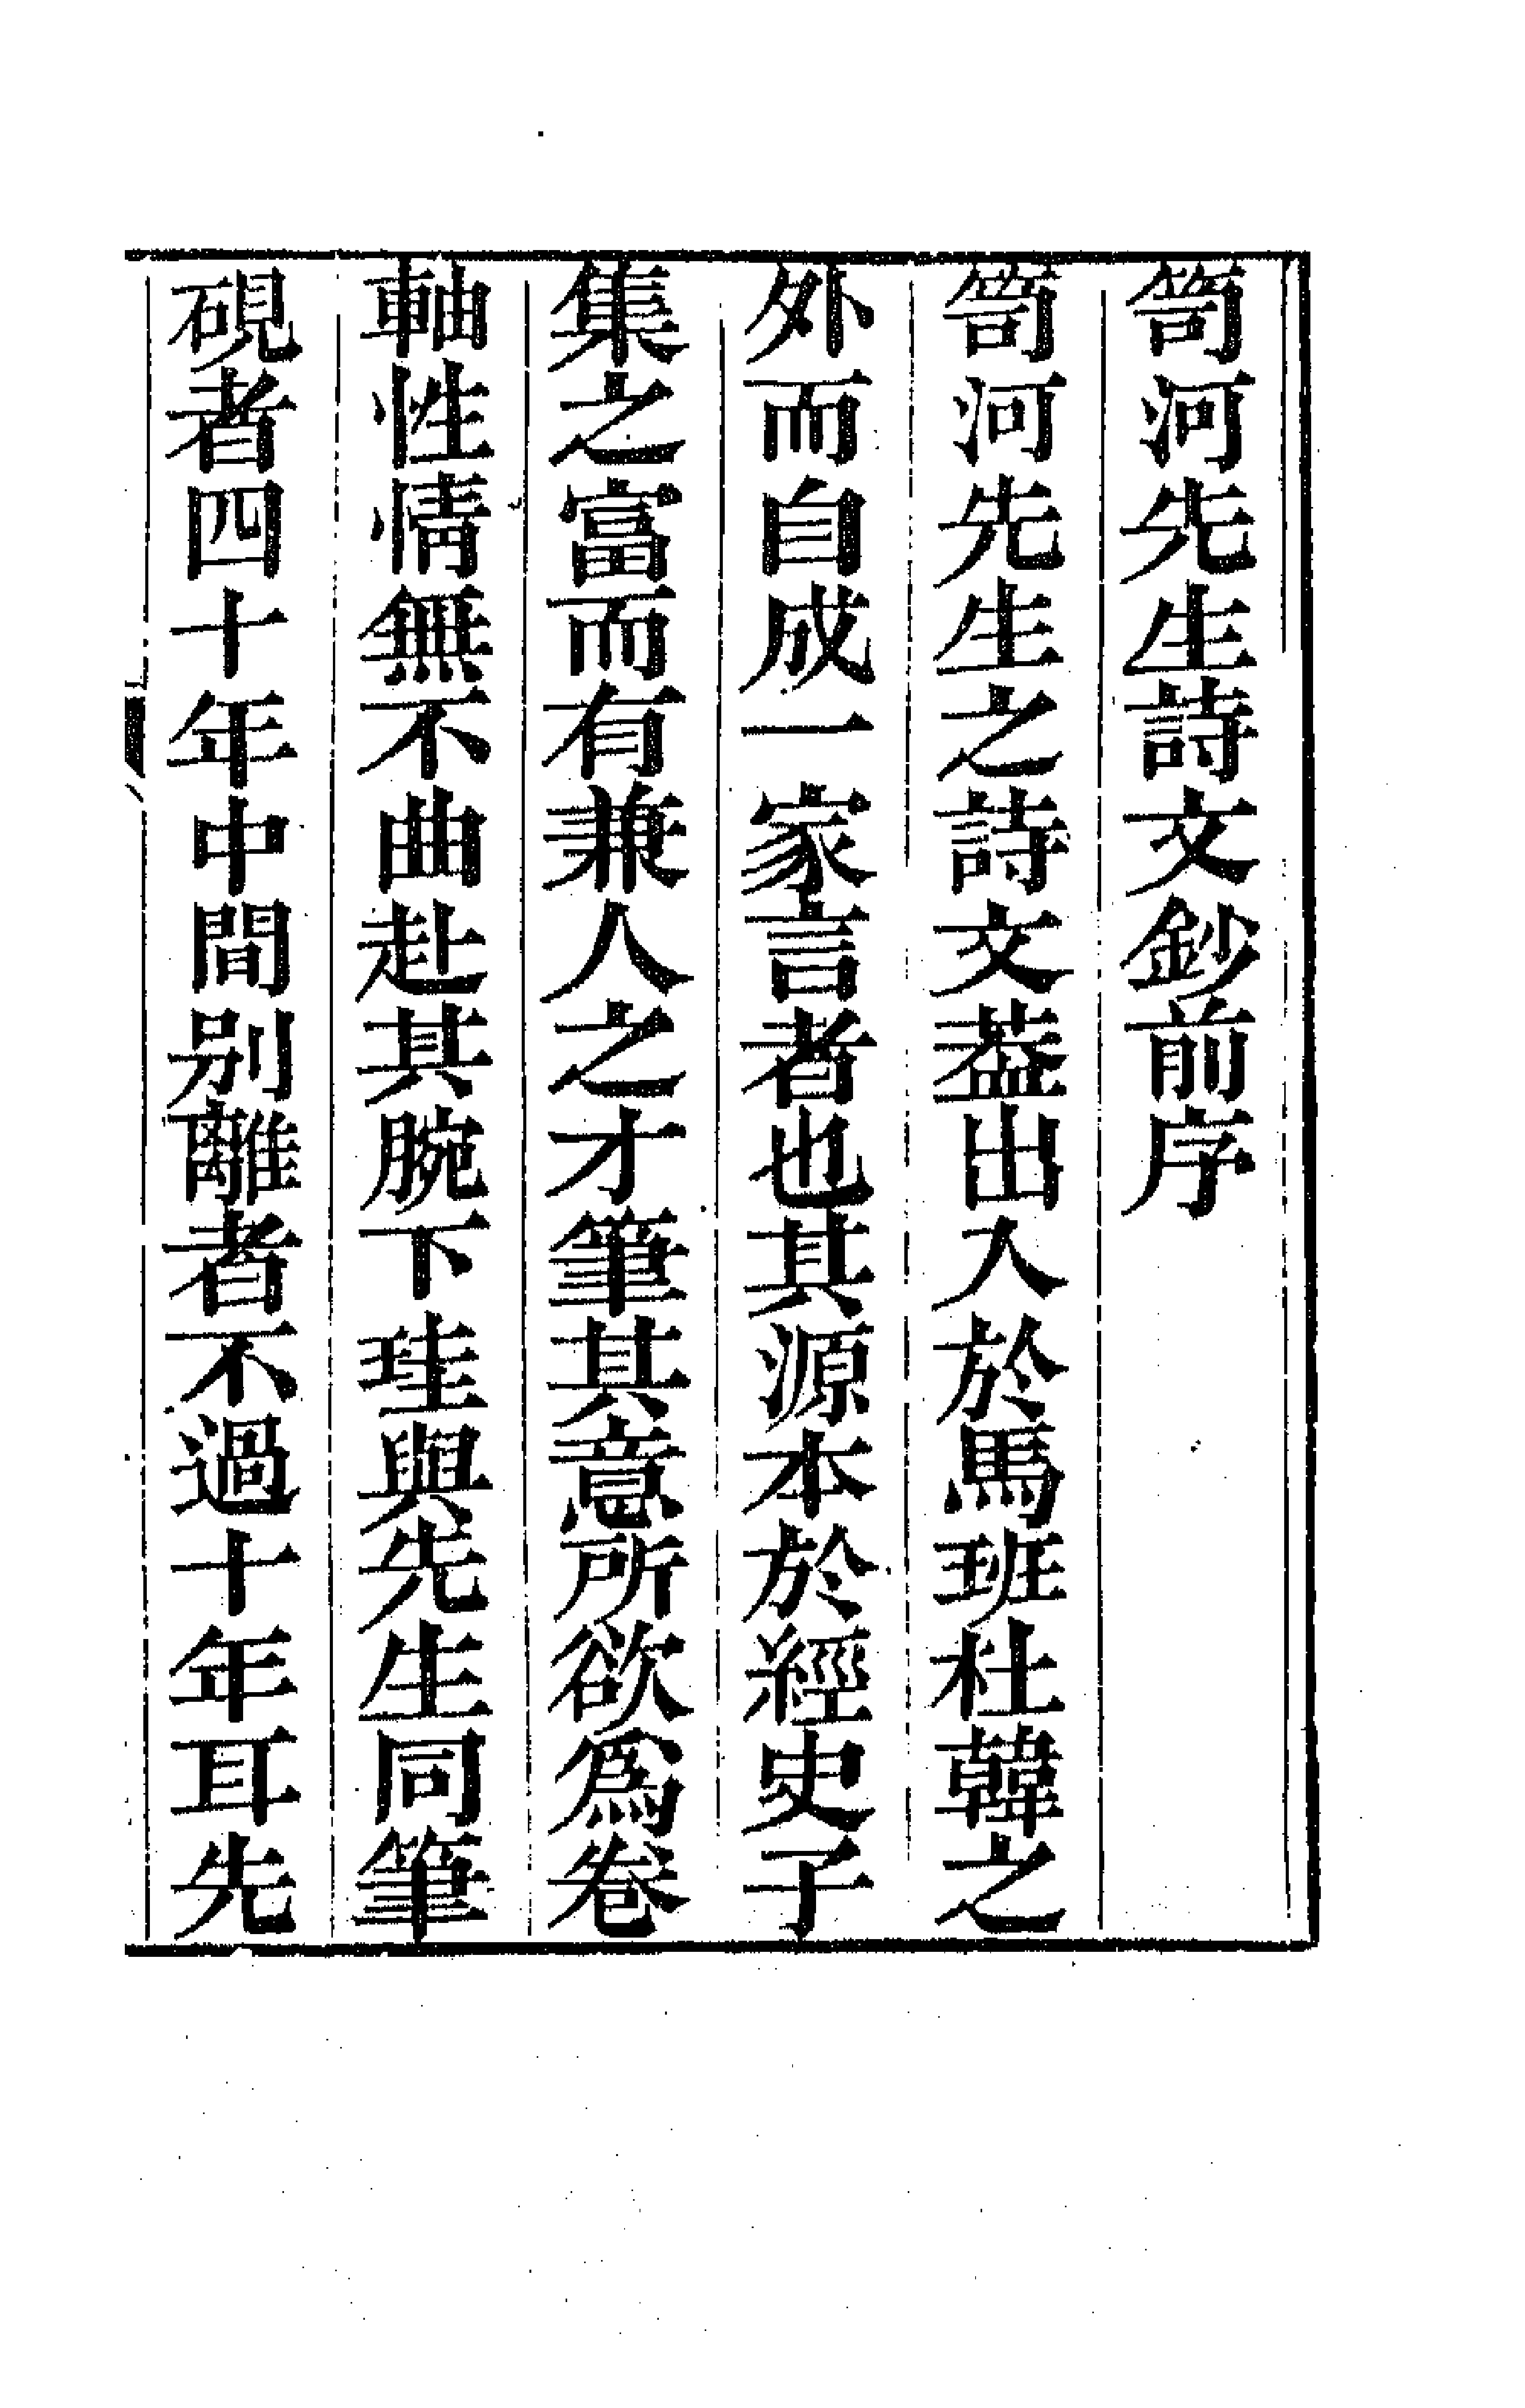 笥河先生詩文鈔前序
笥河先生之詩文葢出入於馬班杜韓之
外而自成一家言者也其源本於經史子
集之富而有兼人之才筆其意所欲爲卷
軸性情無不曲赴其腕下珪與先生同筆
硯者四十年中間别離者不過十年耳先